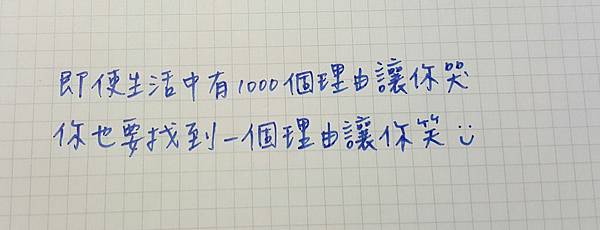 即使生活中有1000個理由讓你哭
你也要找到一個理由讓你笑